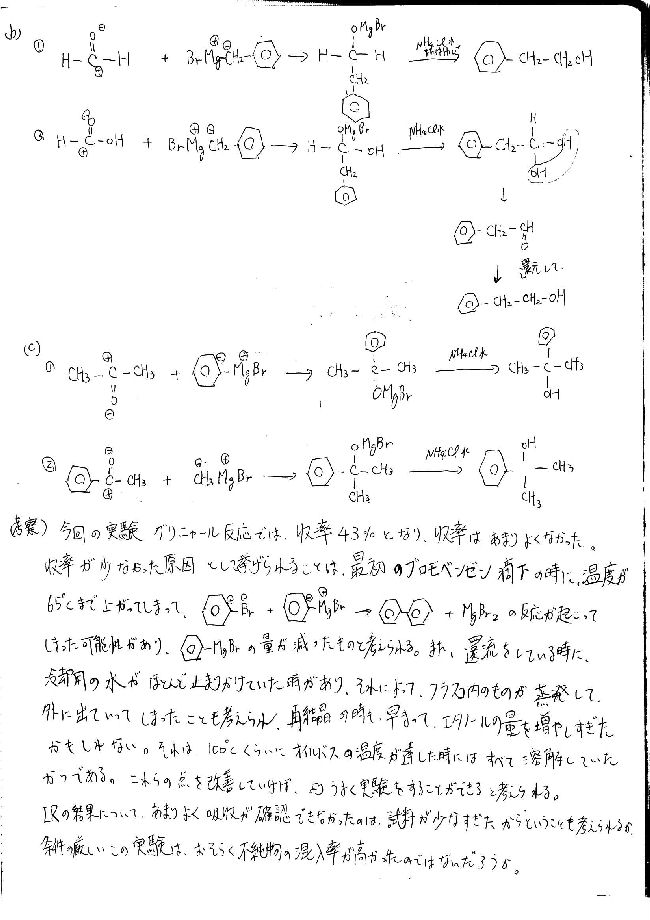 b) ① H-C-H + BrMgCH₂- → H-C-H OMgBr CH₂ NH₄Cl水 -CH₂-CH₂OH
② H-C-OH + BrMgCH₂- → H-C-OH OMgBr CH₂ NH₄Cl水 -CH₂-C-OH H OH
↓
-CH₂-CH O
↓ 還元して
-CH₂-CH₂-OH
(c) ① CH₃-C-CH₃ O + -MgBr → CH₃-C-CH₃ OMgBr NH₄Cl水 → CH₃-C-CH₃ OH
② -C-CH₃ O + CH₃MgBr → -C-CH₃ OMgBr CH₃ NH₄Cl水 → OH CH₃ CH₃
(考察) 今回の実験 グリニャール反応では、収率43%となり、収率はあまりよくなかった。
収率が少なかった原因として挙げられることは、最初のブロモベンゼン滴下の時に、温度が
65℃まで上がってしまって、-Br + -MgBr → + MgBr₂ の反応が起こって
しまった可能性があり、-MgBrの量が減ったものと考えられる。また、還流をしている時に、
冷却用の水がほとんど止まりかけていた時があり、それによって、フラスコ内のものが蒸発して、
外に出ていってしまったことも考えられ、再結晶の時も、早まって、エタノールの量を増やしすぎた
かもしれない。それは 100℃くらいにオイルバスの温度が達した時にはすべて溶解していた
からである。これらの点を改善していけば、よりうまく実験をすることができると考えられる。
IRの結果について、あまりよく吸収が確認できなかったのは、試料が少なすぎたからということも考えられるが、
条件の厳しいこの実験は、おそらく不純物の混入率が高かったのではないだろうか。